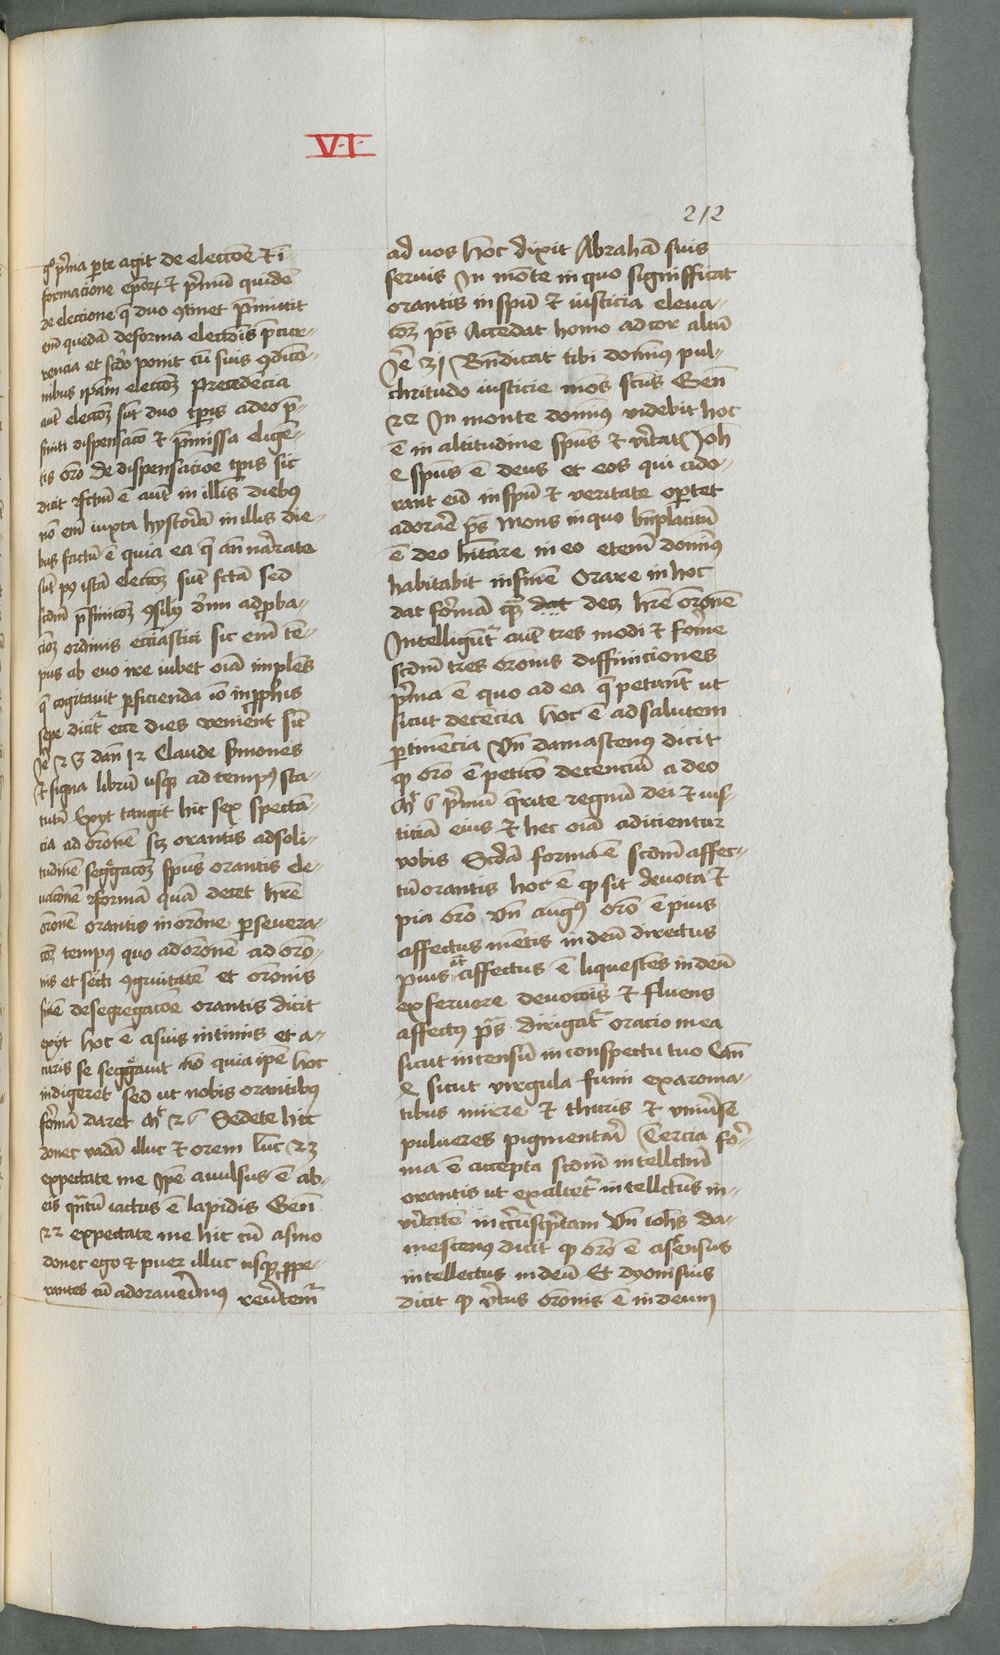 V·I·
212
g° p̄ma parte agit de elecc̄oe et ī-
formacione ep̄orꝫ et p̄mū quidē
de eleccione q̄ duo ꝯtinet p̄mittit
em̄ quedā de forma elecc̄ois
et scd̄o ponit cū suis ꝯdic̄o-
nibus ip̄am elecc̄oꝫ Precedēcia
aut̄ elecc̄oꝫ sūt duo tp̄is a deo p̄-
finiti dispensac̄o et p̄missa eligē-
tis or̄o De dispensac̄ioe tp̄is sic
dicit fctūꝫ ē aut̄ in illis diebꝰ
nō em̄ iuxta hystoriā in illis die-
bus factū ē quia ea q̄ an̄ narrata
sūt pꝰ istā elecc̄oꝫ sūt fctā sed
scdm̄ p̄finic̄oꝫ ꝯsilij diuini ad p̄ba-
c̄oꝫ ordinis eccl̄iastici sic em̄ tē-
pus ab euo ire iubet oīa implēs
q̄ cogitauit perficienda iō in pp̄his
sepe dicit᷑ ecce dies venient sic
Je᷑ 23 dan̄ 12 Claude s̄mones
et signa librū usqꝫ ad tempꝰ sta-
tutū Exijt tangit hic sex spectā-
cia ad or̄onē scꝫ orantis ad soli-
tudinē seg̊gac̄oꝫ sp̄us orantis ele-
uac̄onē ꝛ formā quā decet hr̄e
or̄onē orantis in or̄one perseuera-
c̄oꝫ tempꝰ quo ad or̄onē ad or̄o-
nis et ꝯgruitatē et or̄onis
finē de segregac̄oe orantis dicit
exijt hoc ē a suis intimis et a-
caris se seg̊gauit nō quia ip̄e hoc
indigeret sed ut nobis orantibꝰ
formā daret M᷑ 26 Sedete hic
donec vadā illuc et orem luc̄ 22
expectate me Ip̄e auulsus ē ab-
eis quātū iactus ē lapidis Gen̄
22 expectate me hic cū asino
donec ego et puer illuc usqꝫ ppe-
rantes cū adorauerimꝰ reuertem᷑
ad uos hoc dixit Abrahā suis
seruis In mōte in quo signifficat
orantis in sp̄m et iusticia eleua-
c̄oꝫ p̄s Accedat homo ad cor altū
Je᷑ 31 Bn̄dicat tibi dominꝰ pul-
chritudo iusticie mōs sc̄us Gen̄
22 In monte dominꝰ videbit hoc
ē in altitudine sp̄us et v̄itatis Joh̄
4 sp̄us ē deus et eos qui ado-
rant eū in sp̄u et veritate oportet
adorare p̄s Mons in quo bn̄placitū
ē deo hītare in eo etenī dominꝰ
habitabit in finē Orare in hoc
dat formā quā dat deꝫ hr̄e or̄onē
Intelligūt᷑ aut̄ tres modi et forme
scdm̄ tres or̄onis diffiniciones
p̄ma ē quo ad ea q̄ petant᷑ ut
sicut decēcia hoc ē ad salutem
pertinēcia Vn̄ damascenꝰ dicit
qꝫ or̄o ē petic̄o decenciū a deo
M᷑ 6 p̄mū querite regnū dei et ius-
titiā eius et hec oīa adicientur
vobis Scd̄a forma ē scdm̄ affec-
tū orantis hoc ē qꝫ sit deuota et
pia or̄o Vn̄ augꝰ or̄o ē pius
affectus mētis in deū directus
pius at̄ affectus ē liquescēs in deū
ex feruore deuoc̄ois et fluens
affectꝰ p̄s dirigat᷑ oracio mea
sicut incensū in conspectu tuo Can̄
4 sicut virgula fumi ex aroma-
tibus mirre et thuris et vniu̾se
pulueres pigmentarij Tercia for-
ma ē accepta scdm̄ intellc̄tū
orantis ut excitet᷑ intellc̄tus in-
v̄itatē in cir̄cūscptam Vn̄ ioh̄s da-
mescenꝰ dicit qꝫ or̄o ē ascensus
intellectus in deū Et dyonisius
dicit qꝫ v̄tus or̄onis ē in deum